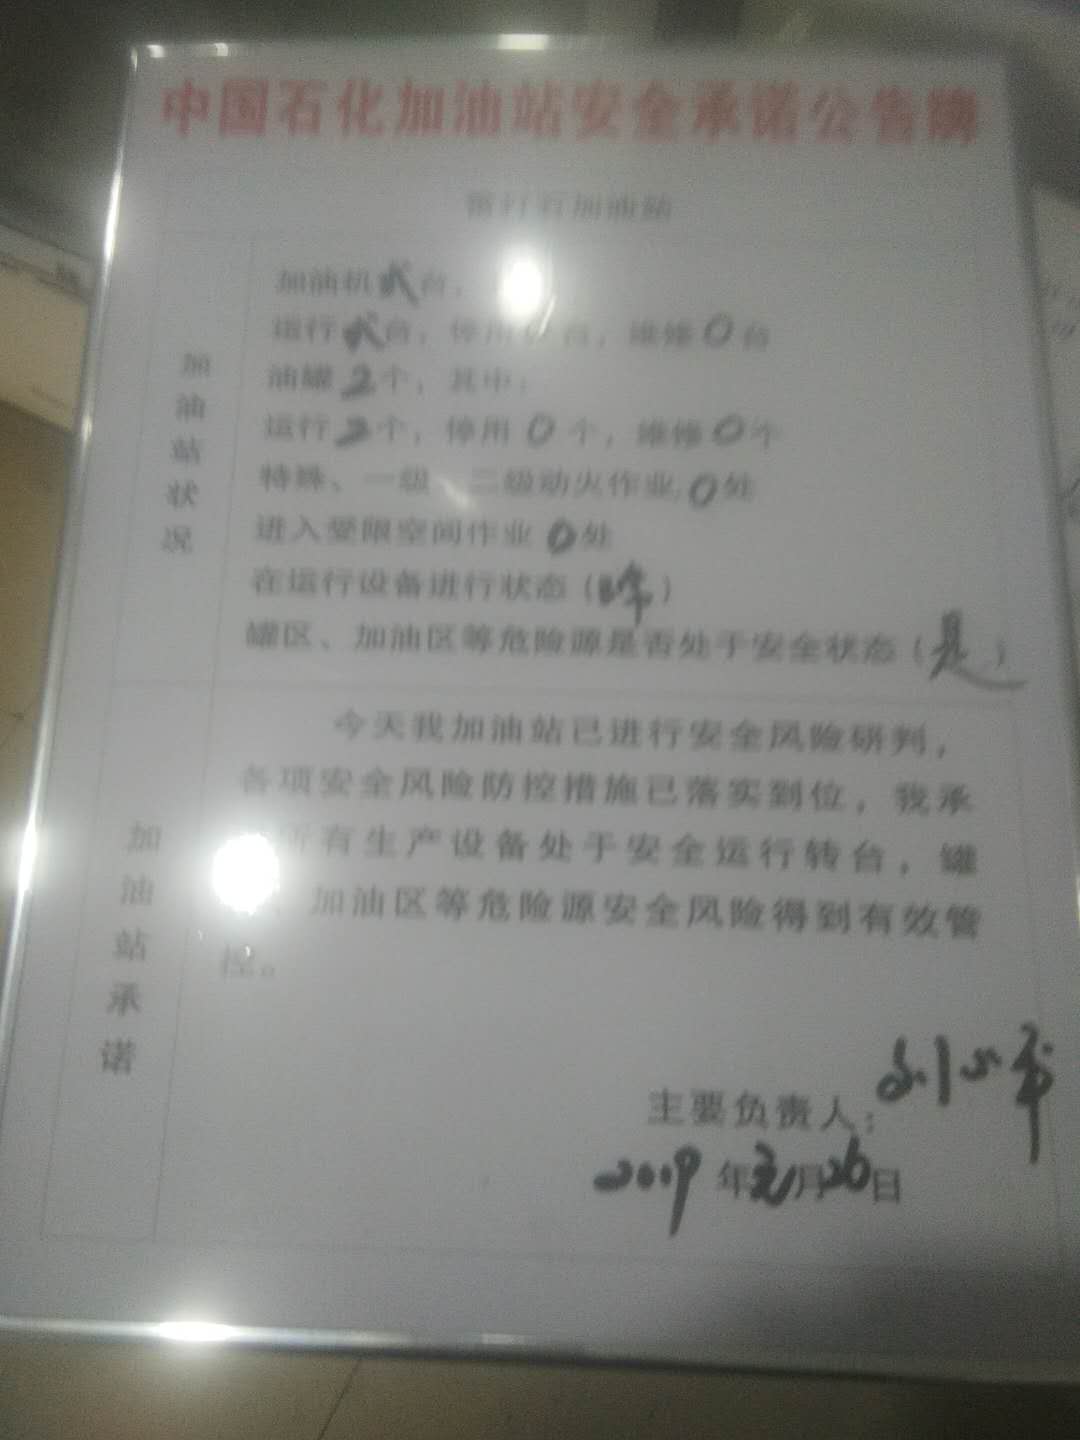 中国石化加油站安全承诺公告牌
雷打石加油站
加油站状况
加油机贰台，
运行贰台，停用 台，维修0台
油罐2个，其中：
运行2个，停用0个，维修0个
特殊、一级、二级动火作业0处
进入受限空间作业0处
在运行设备进行状态（ ）
罐区、加油区等危险源是否处于安全状态（是）
加油站承诺
今天我加油站已进行安全风险研判，
各项安全风险防控措施已落实到位，我承
所有生产设备处于安全运行转台，罐
、加油区等危险源安全风险得到有效管
控。
主要负责人：刘
2009年元月26日